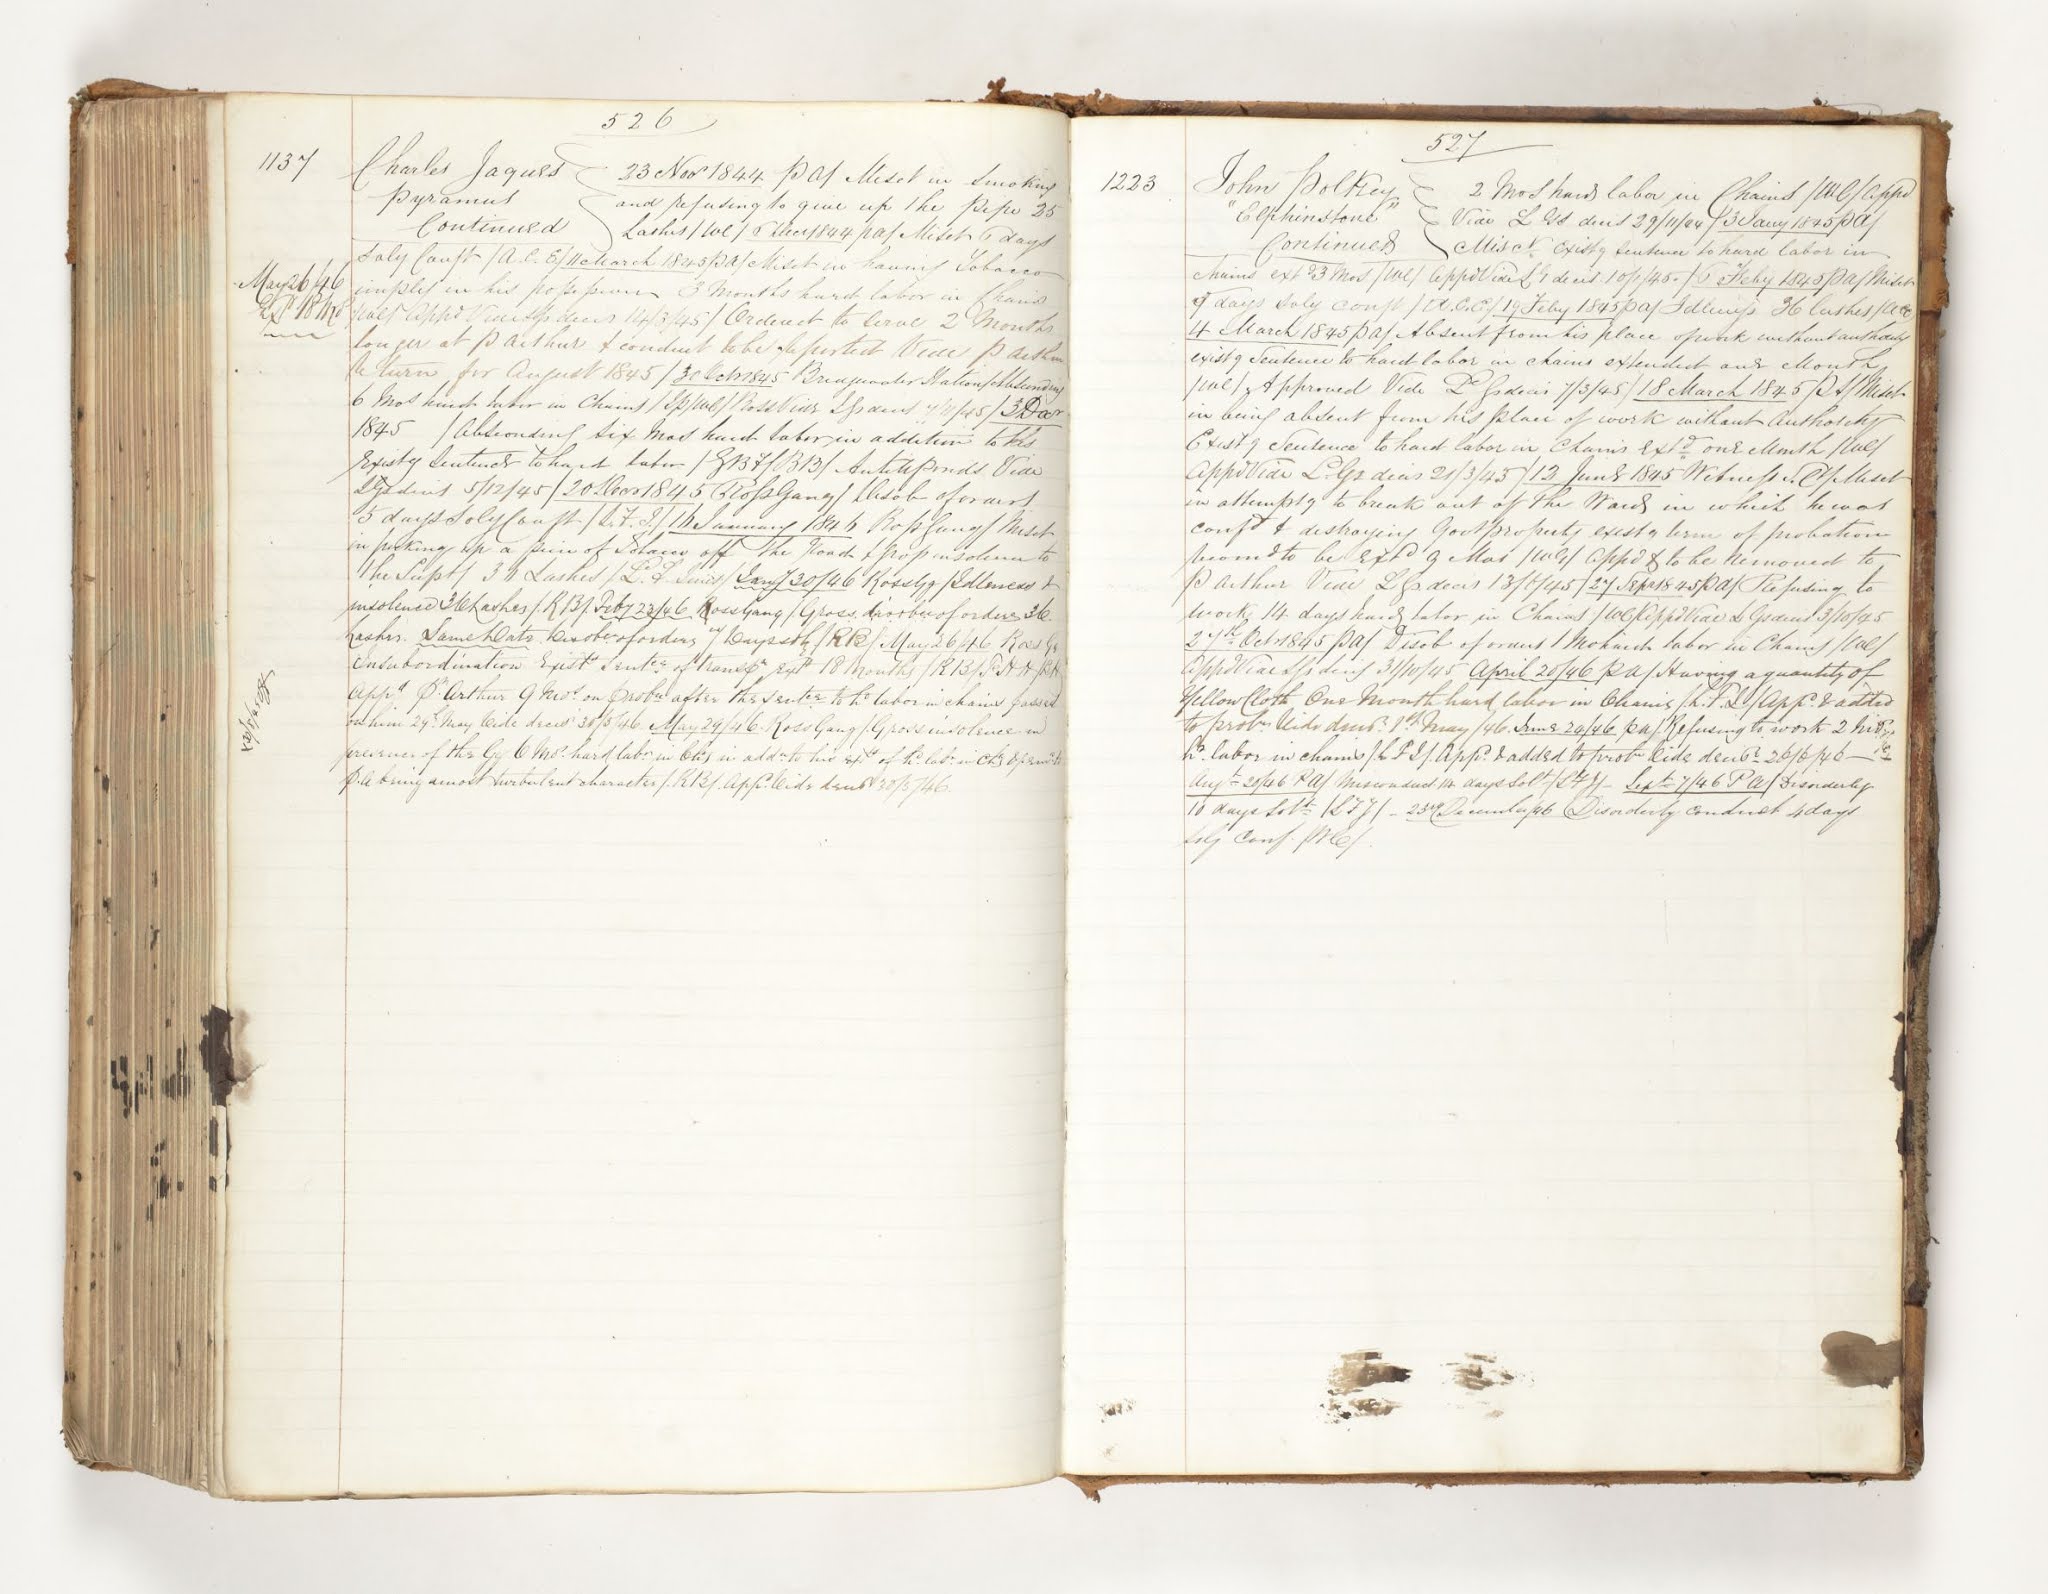 526
1137
Charles Jaques
Pyramus
Continued
23 Nov 1844 PA/ Misct in smoking
and refusing to give up the Pipe 25
Lashes /WC/ 1844 PA/ Misct 6 days
Soly Conft /A.C.C/ 11 March 1845 PA/ Misct in having Tobacco
May 26/46
Extd 18 Mos
in his possession 3 Months hard labor in Chains
/WC/ Appd Vide decis 14/3/45/ Ordered to serve 2 Months
longer at P Arthur & conduct to be reported Vide P Arthur
Return for August 1845/ 30 Octr 1845 Bridgewater Station/Absconding
6 Mos hard labor in Chains / /WC/ Ross Vide L Gs decis 7/11/45/ 3 Decr
1845 /Absconding Six Mos hard labor in addition to his
Existg Sentence to hard labor / / Antill Ponds Vide
L Gs decis 5/12/45/ 20 Decr 1845 Ross Gang/ Disob of orders
5 days Soly Conft / / 16 January 1846 Ross Gang/ Misct
in picking up a piece of Tobacco off the Road & insolence to
the Supt/ 30 Lashes / / Jany 30/46 Ross Gg /Idleness &
insolence 36 Lashes /RB/ Feby 23/46 Ross Gang /Gross disobce of orders 36
Lashes. Same Date. Disobce of orders 7 Days sol /RB/ May 26/46 Ross Gg
Insubordination Existg Sentce of transpn extd 18 months /RB/
Appd Pt Arthur 9 Mos on probn after the Sentce to hd labor in chains passed
on him 29th May Vide decisn 30/5/46 May 29/46. Ross Gang /Gross insolence in
presence of the Gg 6 Mos hard labr in Chs in addn to his of hd labr in Chs &
P.A being a most turbulent character /RB/ Appd Vide decisn 30/5/46.
527
1223
John Polkey
"Elphinstone"
Continued
2 Mos hard labor in Chains /WC/ Appd
Vide L Gs decis 29/11/44 /3 Jany 1845 PA/
Misct existg Sentence to hard labor in
chains extd 3 Mos /WC/ Appd Vide L Gs decis 10/1/45. / 5 Feby 1845 PA/ Misct
7 days Soly conft /A.C.C/ 19 Feby 1845 PA/ Idling 36 lashes /ACC
4 March 1845 PA/ Absent from his place of work without authority
existg Sentence to hard labor in chains extended one Month
/WC/ Approved Vide L Gs decis 7/3/45/ 18 March 1845 PA/ Misct
in being absent from his place of work without Authority
Existg Sentence to hard labor in Chains Extd one Month /WC/
Appd Vide L. Gs decis 21/3/45 /12 June 1845 PA/ Misct
in attemptg to break out of the Ward in which he was
confd & destroying Govt property existg term of probation
recomd to be Extd 9 Mos /WC/ Appd & to be removed to
P Arthur Vide L Gs decis 13/6/45 /27 Sepr 1845 PA/ Refusing to
work 14 days hard labor in Chains /WC/ Appd Vide L Gs decis 3/10/45
27th Octr 1845 PA/ Disob of orders 1 Mo hard labor in Chains /WC/
Appd Vide L Gs decis 31/10/45 April 20/46 P A/ Having a quantity of
Yellow Cloth One Month hard labor in Chains / / Appd & added
to probn Vide decisn 1st May/46. June 20/46 PA/ Refusing to work 2 Mos
hd labor in chains / / Appd & added to probn Vide decisn 26/6/46
Augt 20/46 P A/ Misconduct 14 days Solt / / Septr 7/46 P A/ Disorderly
10 days Solt /LFJ/ – 23rd December/46 Disorderly conduct 4 days
Soly conf.